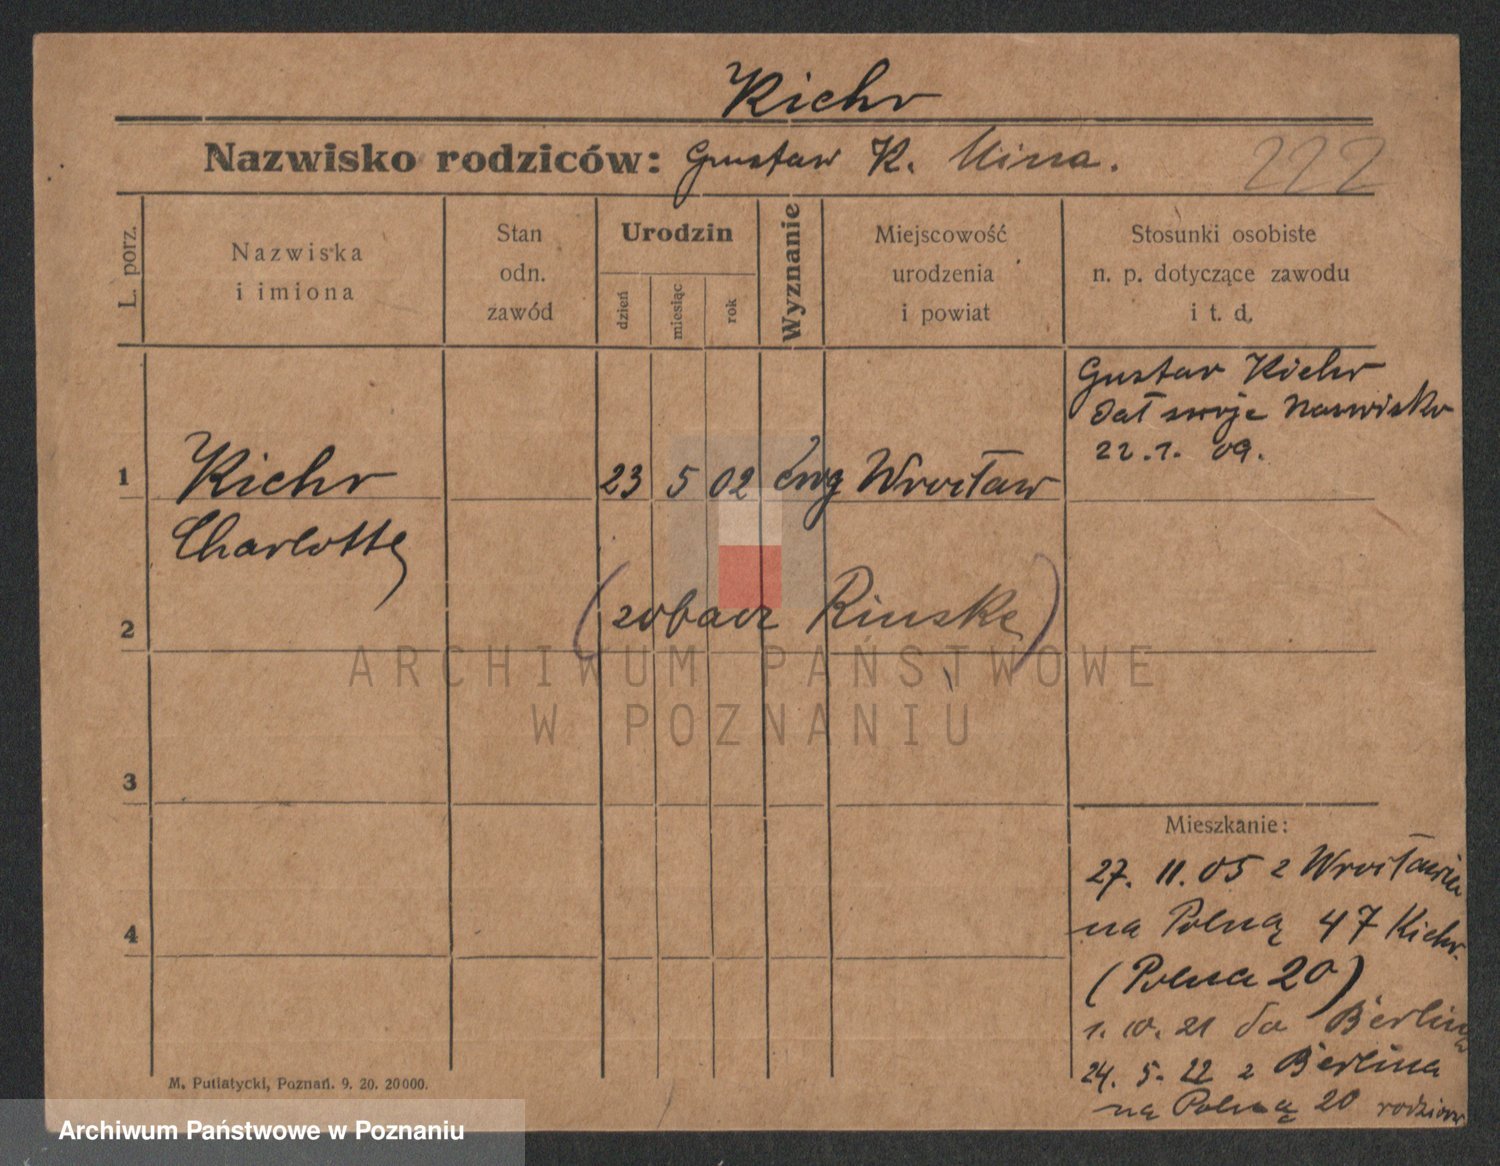 Kiehr
Nazwisko rodziców: Gustaw K. Mina.
222
L. porz.
Nazwiska
i imiona
Stan
odn.
zawód
Urodzin
dzień
miesiąc
rok
Wyznanie
Miejscowość
urodzenia
i powiat
Stosunki osobiste
n. p. dotyczące zawodu
i t. d.
Gustav Kiehr
dał swoje nazwisko
22. 1. 09.
1
Kiehr
Charlotte
23 5 02 ewg Wrocław
2
(zobacz
3
4
Mieszkanie:
27. 11. 05 z Wrocławia
na Polną 47 Kiehr.
(Polna 20)
1. 10. 21 do Berlina
24. 5. 22 z Berlina
na Polną 20
M. Putiatycki, Poznań. 9. 20. 20000.
ARCHIWUM PAŃSTWOWE
W POZNANIU
Archiwum Państwowe w Poznaniu